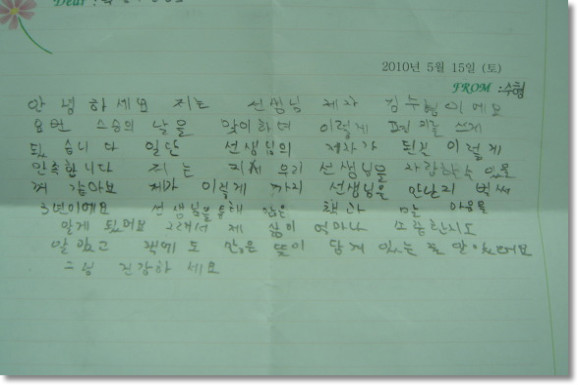 Dear :
2010년 5월 15일 (토)
FROM :수형
안녕하세요 저는 선생님 제자 김수형이에요
요번 스승의 날을 맞이하여 이렇게 편지를 쓰게
됬습니다 일단 선생님의 제자가 된걸 이렇게
만족합니다 저는 우리 선생님을 사랑하수 있을
꺼 같아요 제가 이렇게 까지 선생님을 만난지 벌써
3년이에요 선생님을 통해 많은 책과 많은 마음을
알게 됬어요 그래서 제 삶이 얼마나 소중한지도
알았고 책에도 많은 뜻이 담겨 있는 줄 알았어요
그럼 건강하세요